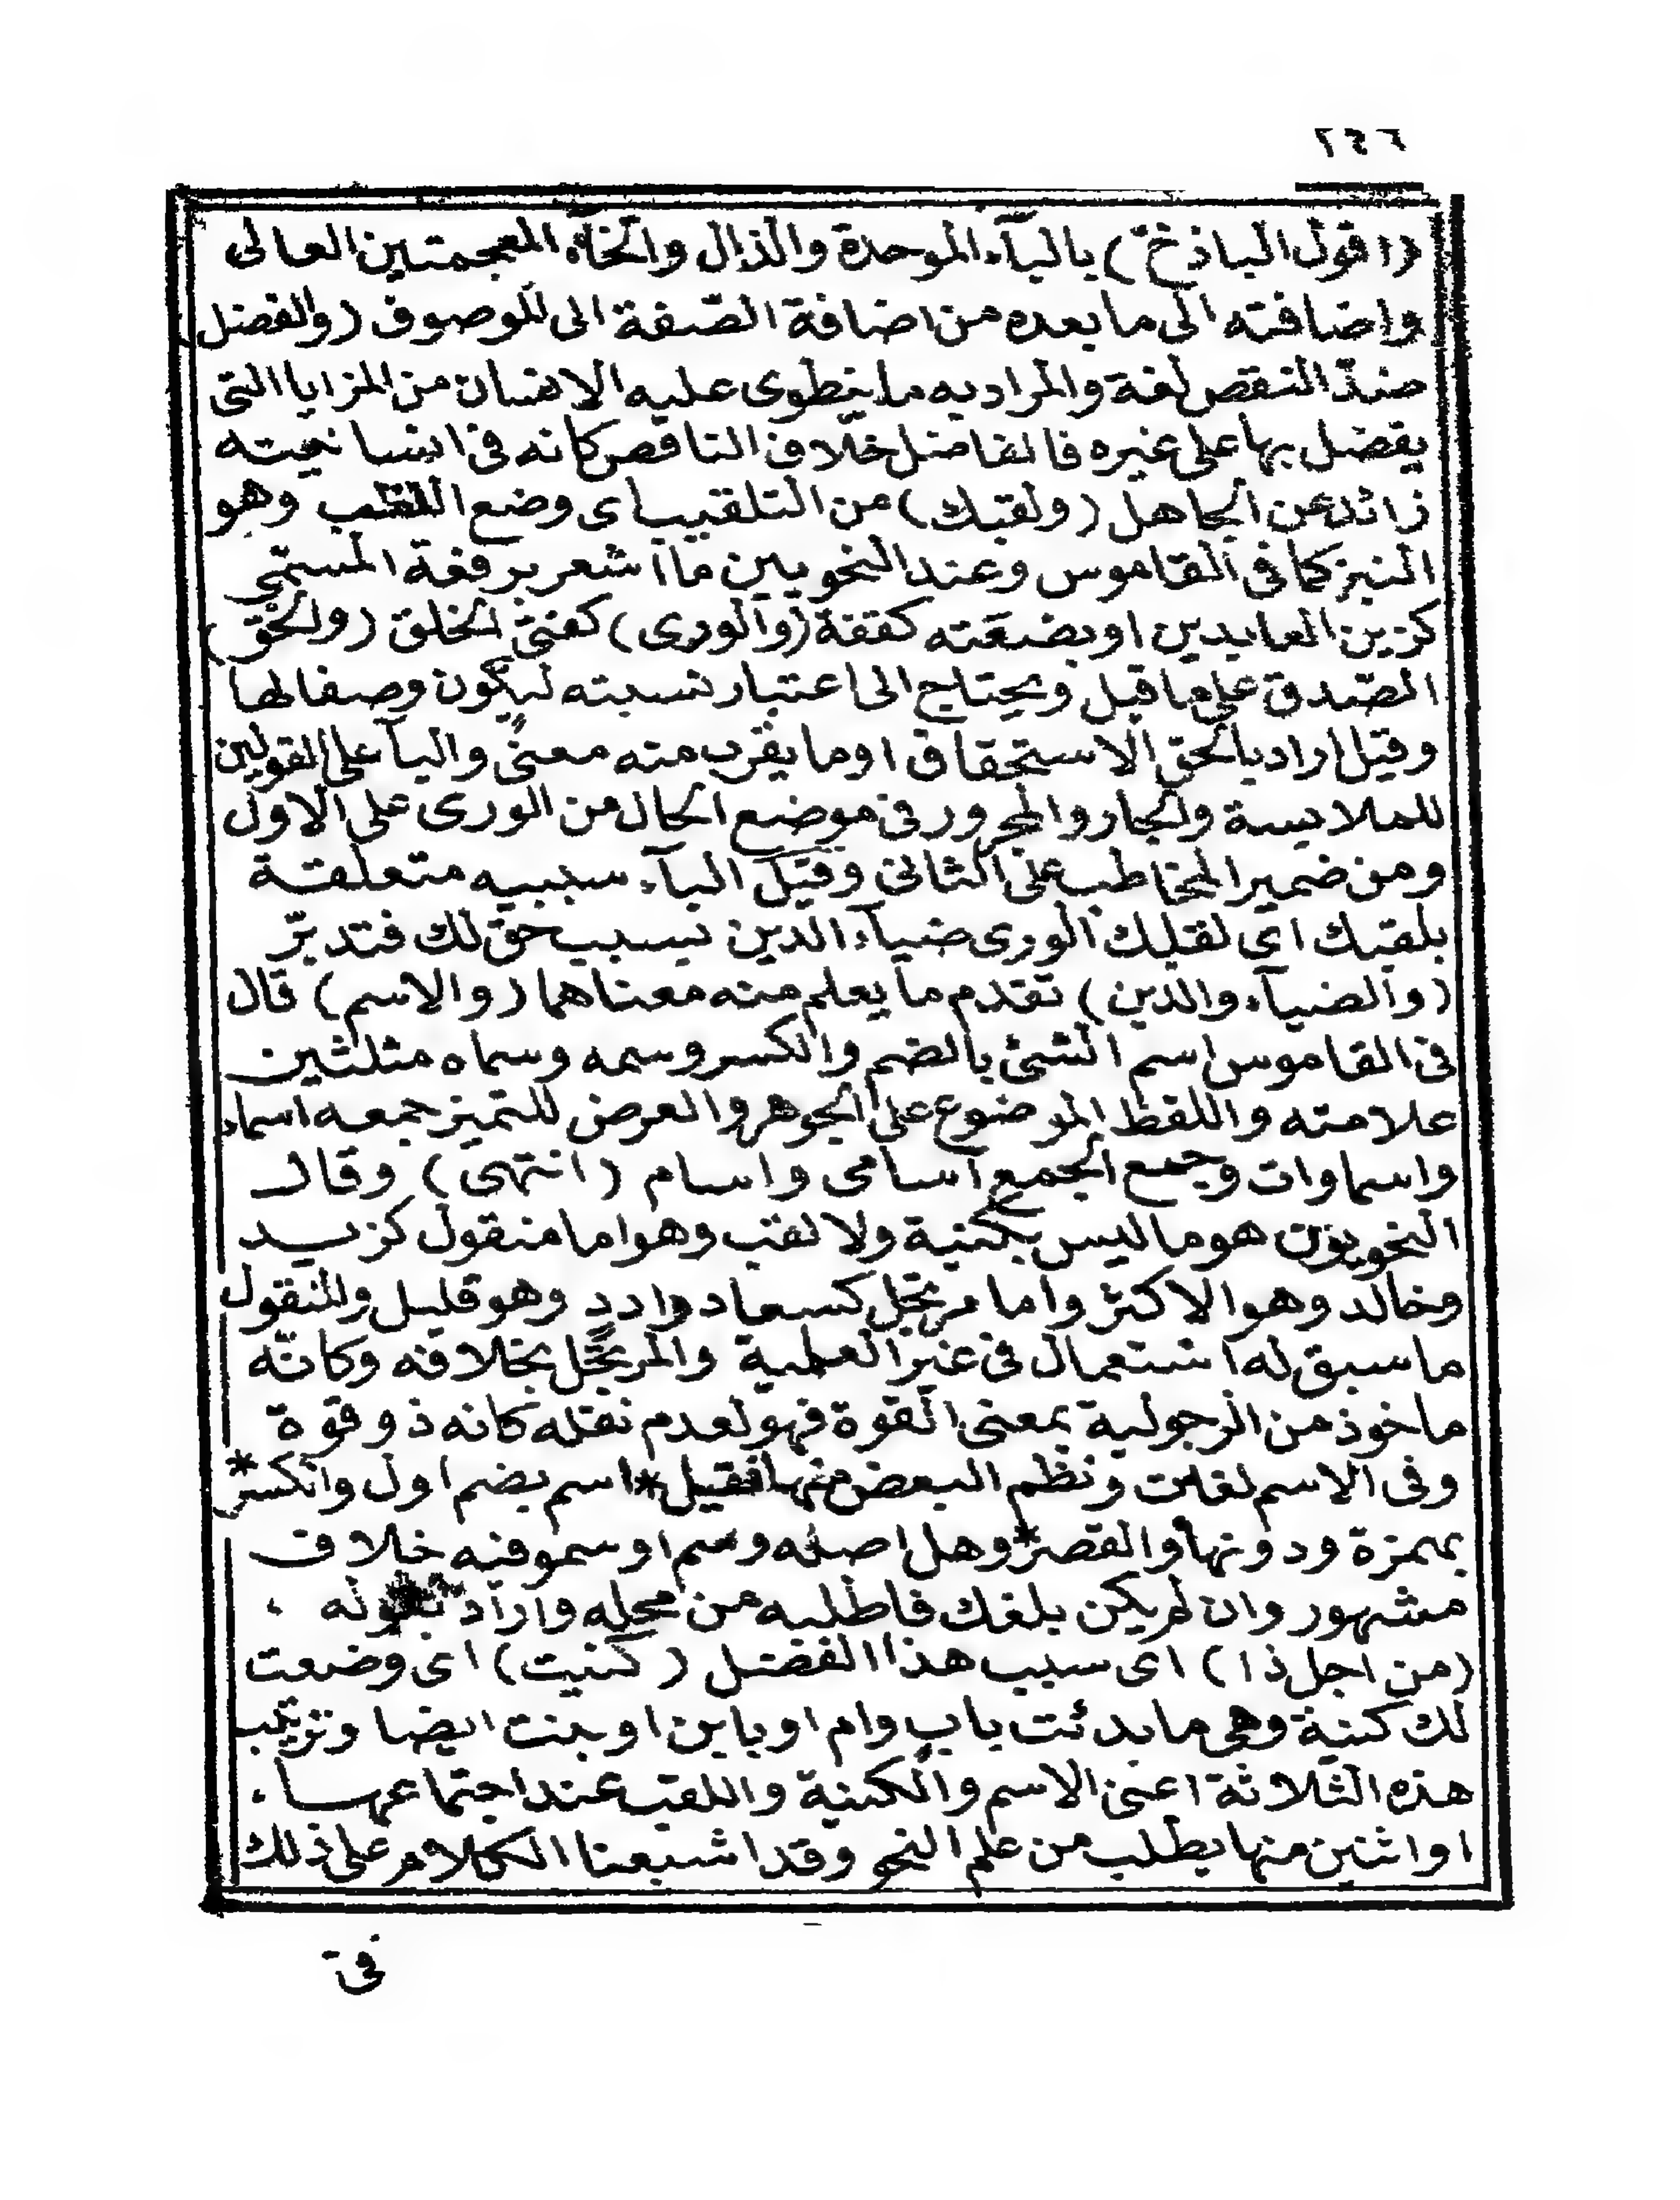 ٢٤٦
(اقول الباذخ) بالبآء الموحدة والذال والخآء المعجمتين العالى
واضافته الى ما بعده من اضافة الصّفة الى الموصوف (والفضل)
ضدّ النقص لغة والمراد به ما ينطوى عليه الانسان من المزايا التى
يفضل بها على غيره فالفاضل خلاف الناقص كانه فى انسانيته
زائد عن الجاهل (ولقبك) من التلقيب اى وضع اللقب وهو
النبز كما فى القاموس وعند النحويين ما اشعر برفعة المسمّى
كزين العابدين او بضعته كقفة (والورى) كفتى الخلق (والحقّ)
الصّدق على ما قيل ويحتاج الى اعتبار نسبته ليكون وصفا لها
وقيل اراد بالحق الاستحقاق او ما يقرب منه معنًى والبآ على القولين
للملابسة والجار والمجرور فى موضع الحال من الورى على الاول
ومن ضمير المخاطب على الثانى وقيل البآء سببيه متعلقة
بلقبك اى لقبك الورى ضيآء الدين بسبب حق لك فتدبّر
(والضيآء والدين) تقدم ما يعلم منه معناهما (والاسم) قال
فى القاموس اسم الشئ بالضم والكسر وسمه وسماه مثلثين
علامته واللفظ الموضوع على الجوهر والعرض للتميز جمعه اسماء
واسماوات وجمع الجمع اسامى واسام (انتهى) وقال
النحويون هو ما ليس بكنية ولا لقب وهو اما منقول كزيد
وخالد وهو الاكثر واما مرتجل كسعاد وادد وهو قليل والمنقول
ما سبق له استعمال فى غير العلمية والمرتجل بخلافه وكانّه
ماخوذ من الرجولية بمعنى القوة فهو لعدم نقله كانه ذو قوة
وفى الاسم لغات ونظم البعض منها فقيل * اسم بضم اول والكسر *
بهمزة ودونها والقصر * وهل اصله وسم او سمو فيه خلاف
مشهور وان لم يكن بلغك فاطلبه من محله واراد بقوله ،
(من اجل ذا) اى سبب هذا الفضل (كنيت) اى وضعت
لك كنية وهى ما بدئت باب وام او بابن او بنت ايضا وترتيب
هذه الثلاثة اعنى الاسم والكنية واللقب عند اجتماعها ،
او اثنين منها يطلب من علم النحو وقد اشبعنا الكلام على ذلك
فى